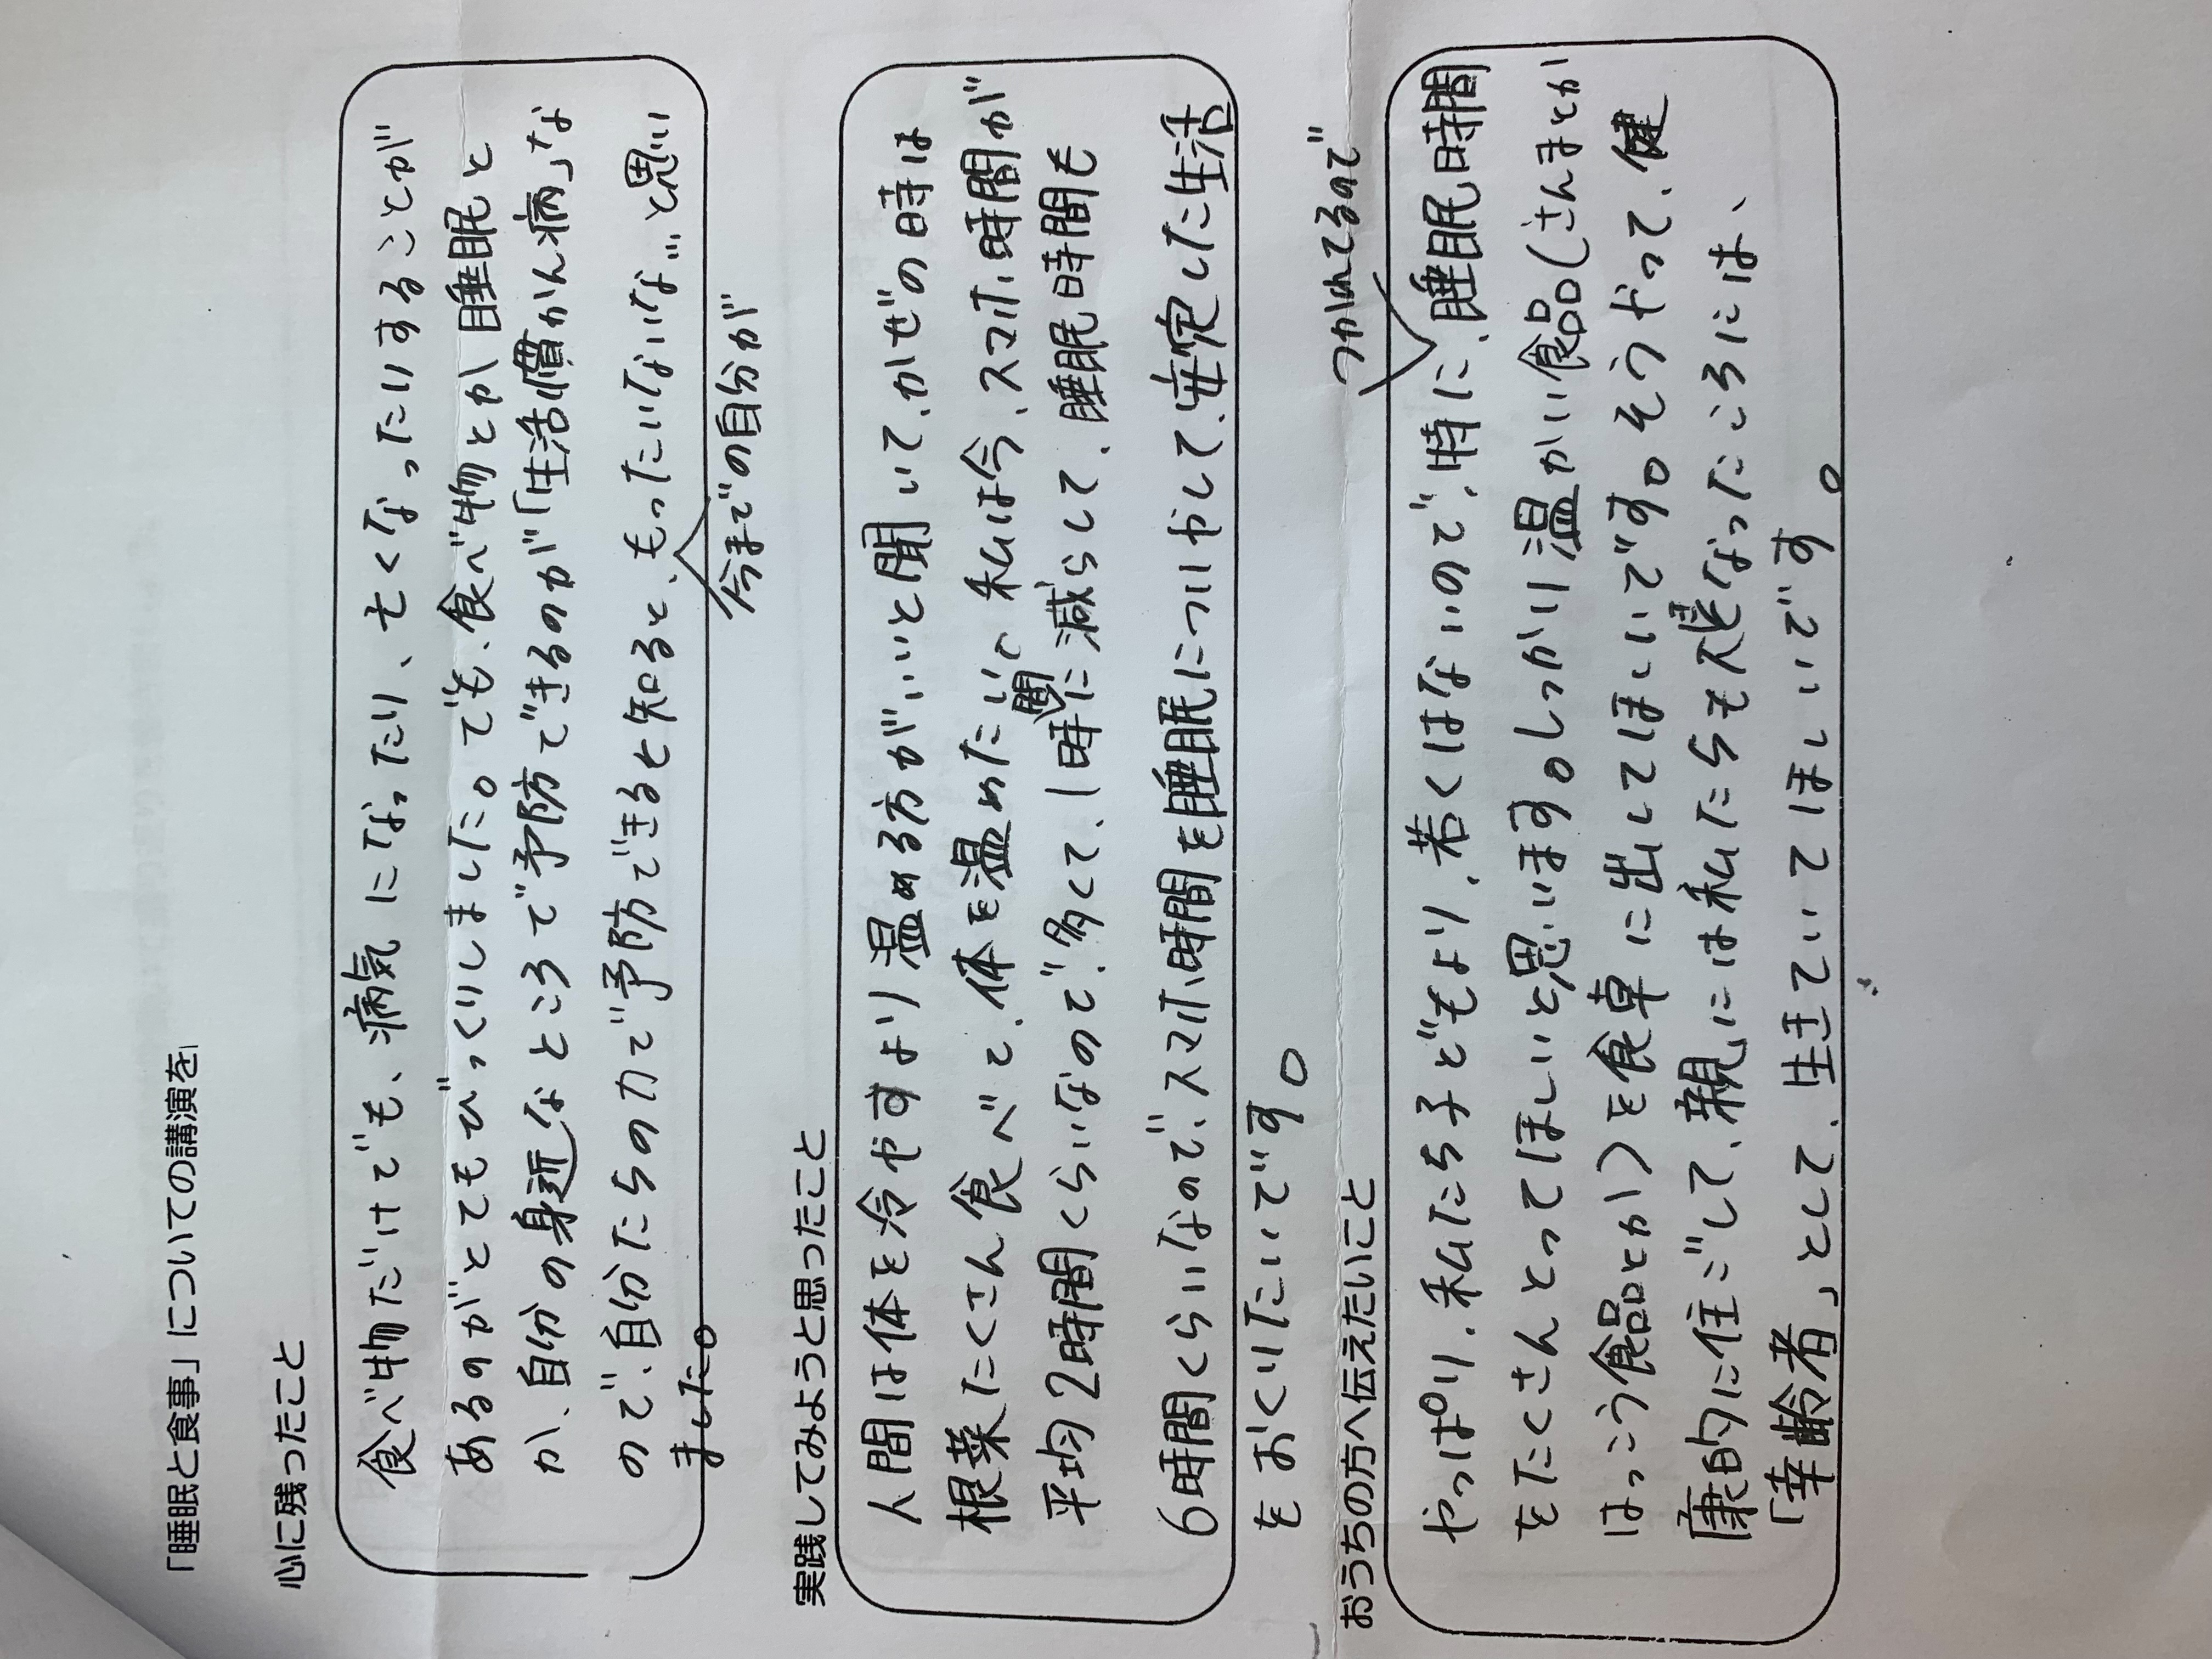 「睡眠と食事」についての講演を
心に残ったこと
食べ物だけでも、病気になったり、亡くなったりすることが
あるのがとてもびっくりしました。でも、食べ物とか睡眠と
か、自分の身近なところで予防できるのが「生活慣かん病」な
ので、自分たちの力で予防できると知ると、もったいないな…と思い
今までの自分が
ました。
実践してみようと思ったこと
人間は体を冷やすより温める方がいいと聞いて、かぜの時は
根菜たくさん食べて、体を温めたい。私は今、スマホ時間が
平均2時間くらいなので、多くて、1時間に減らして、睡眠時間も
6時間くらいなので、スマホ時間を睡眠についやして、安定した生活
をおくりたいです。
おうちの方へ伝えたいこと
つかれてるので
やっぱり、私たち子どもより、若くはないので、特に、睡眠時間
をたくさんとってほしいと思います。しっかり温かい食品(さんまとか
はっこう食品とか)を食卓に出してほしいです。そうやって、健
康的に住ごして、親には私たちも大人になったころには、
「幸齢者」として、生きていてほしいです。